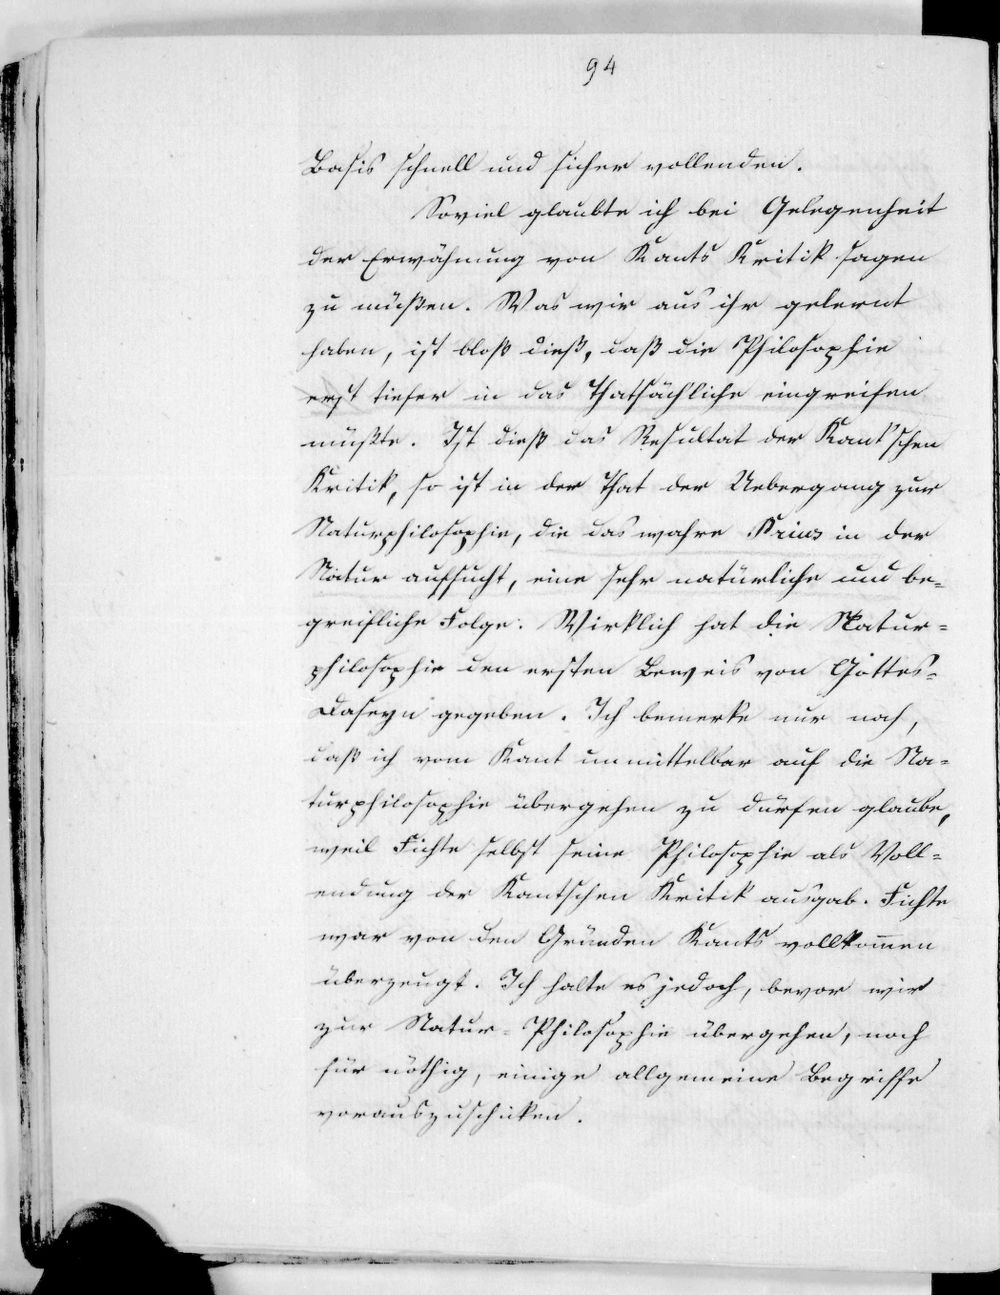 94
Basis schnell und sicher vollenden.
Soviel glaubte ich bei Gelegenheit
der Erwähnung von Kants Kritik sagen
zu müßen. Was wir aus ihr gelernt
haben, ist bloß dieß, daß die Philosophie
erst tiefer in das Thatsächliche eingreifen
müßte. Ist dieß das Resultat der Kant'schen
Kritik, so ist in der That der Uebergang zur
Naturphilosophie, die das wahre Prius in der
Natur aufsucht, eine sehr natürliche und be-
greifliche Folge. Wirklich hat die Natur-
philosophie den ersten Beweis von Gottes-
Daseyn gegeben. Ich bemerke nur noch,
daß ich vom Kant unmittelbar auf die Na-
turphilosophie übergehen zu dürfen glaube,
weil Fichte selbst seine Philosophie als Voll-
endung der Kantschen Kritik ausgab. Fichte
war von den Gründen Kants vollkom̄en
überzeugt. Ich halte es jedoch, bevor wir
zur Natur-Philosophie übergehen, noch
für nöthig, einige allgemeine Begriffe
vorauszuschicken.